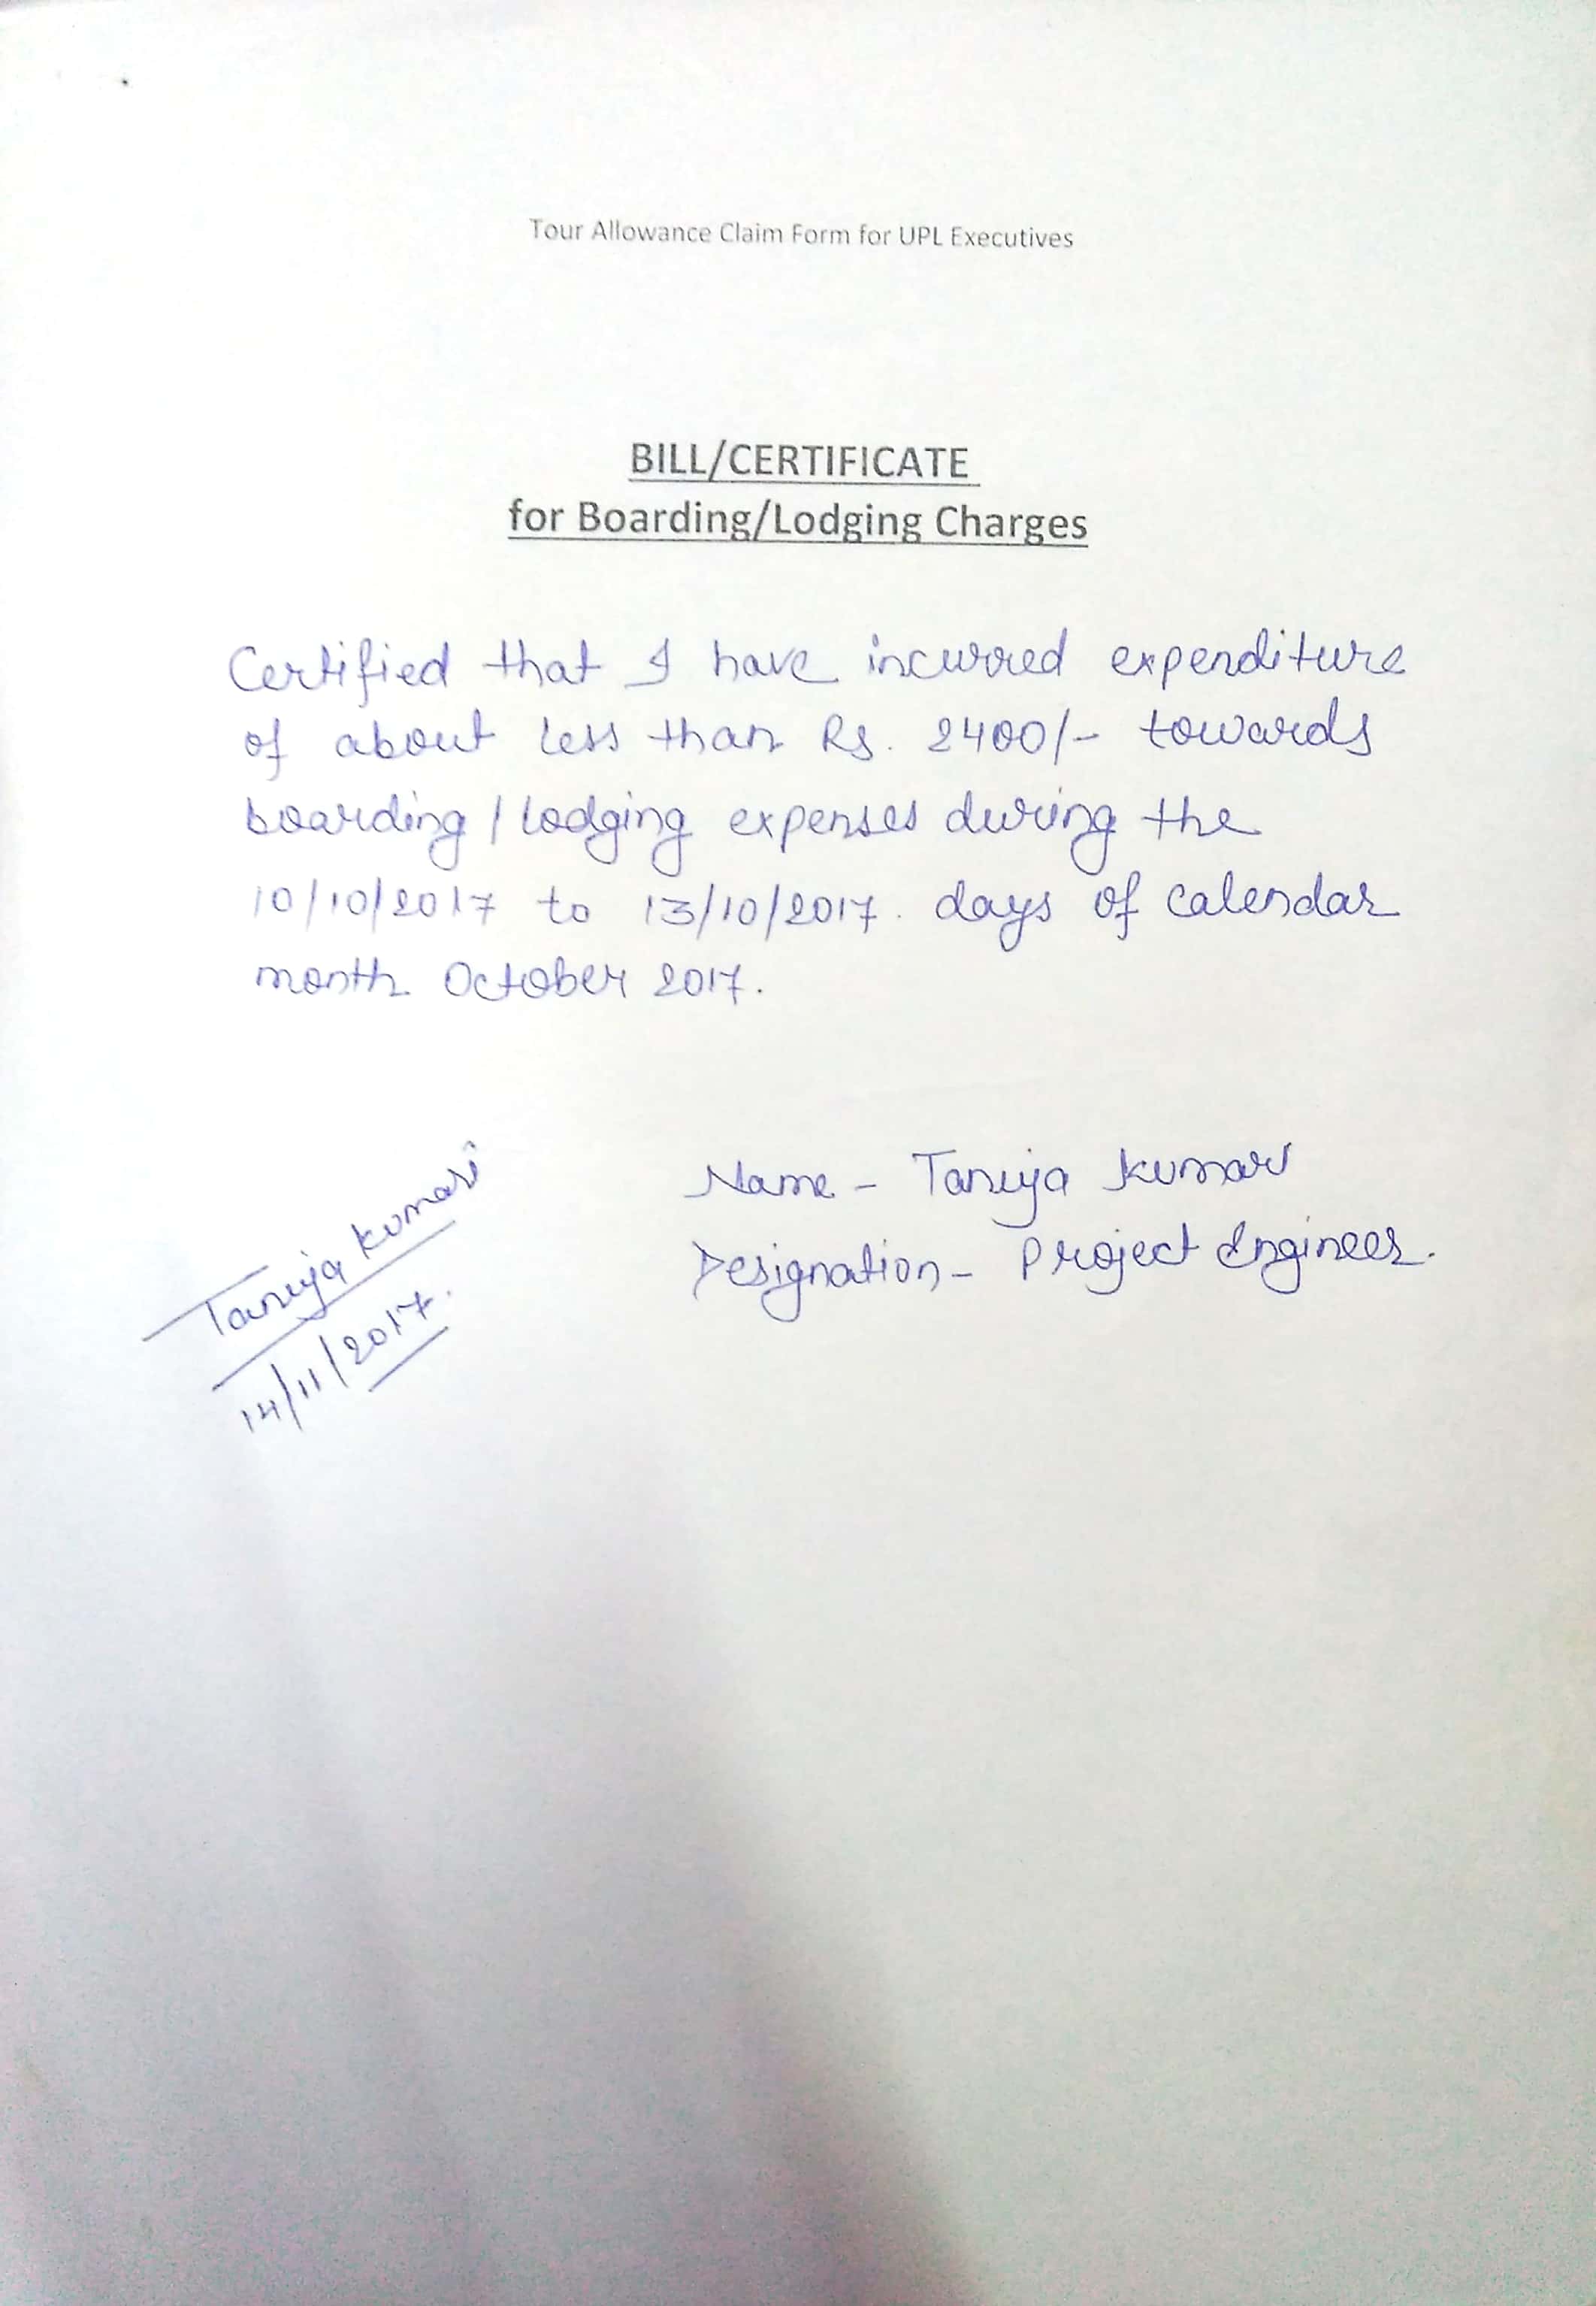 Tour Allowance Claim Form for UPL Executives
BILL/CERTIFICATE
for Boarding/Lodging Charges
Certified that I have incurred expenditure
of about less than Rs. 2400/- towards
boarding / lodging expenses during the
10/10/2017 to 13/10/2017. days of calendar
month October 2017.
Name - Tanuja Kumari
Designation - Project Engineer.
Tanuja Kumari
14/11/2017.